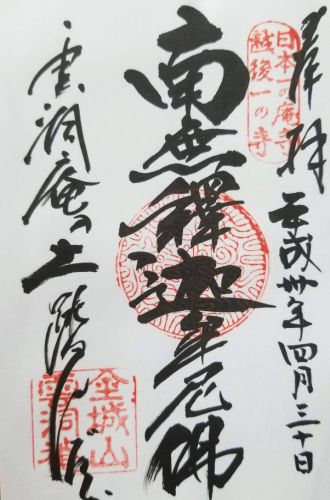 奉拝
平成卅年四月三十日
日本一の庵寺
越後一の寺
南無釋迦牟尼佛
雲洞庵の土踏んだか
金城山
雲洞庵